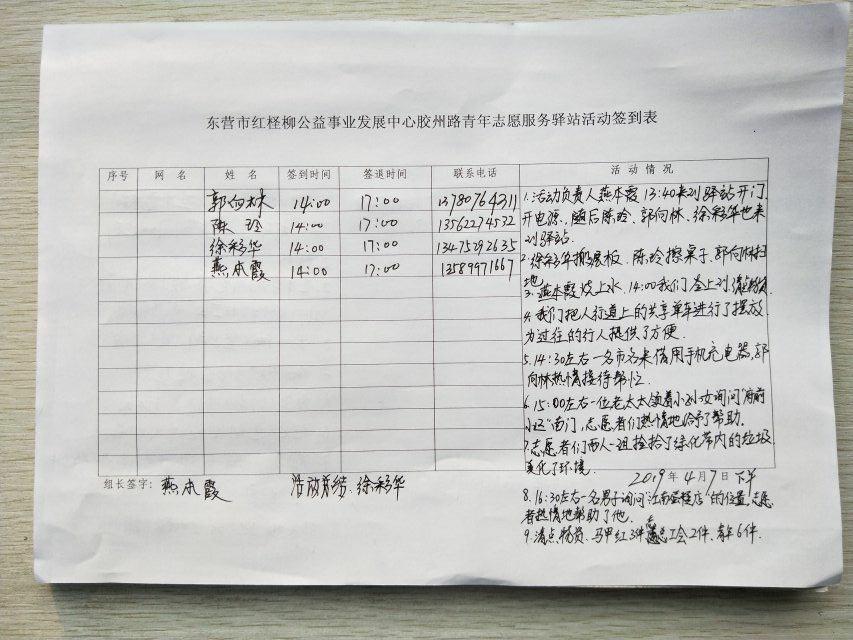 东营市红柽柳公益事业发展中心胶州路青年志愿服务驿站活动签到表
序号 网 名 姓 名 签到时间 签退时间 联系电话 活 动 情 况
郭向林 14:00 17:00 13780764311
陈 玲 14:00 17:00 13562274532
徐彩华 14:00 17:00 13475292635
燕本霞 14:00 17:00 13589971667
1.活动负责人燕本霞13:40来到驿站开门
开电源、随后陈玲、郭向林、徐彩华也来
到驿站.
2.徐彩华搬展板、陈玲擦桌子、郭向林扫
地
3.燕本霞烧上水、14:00我们签上到
4.我们把人行道上的共享单车进行了摆放
为过往的行人提供了方便.
5.14:30左右一名市名来借用手机充电器,郭
向林热情接待帮忙.
6.15:00左右一位老太太领着小孙女询问"府前
小区"南门,志愿者们热情地给予了帮助.
7.志愿者们两人一组捡拾了绿化带内的垃圾
美化了环境.
组长签字: 燕本霞 活动总结:徐彩华 2019年4月7日下午
8.16:30左右一名男子询问 店"的位置,志愿
者热情地帮助了他.
9.清点物资、马甲红3件 总工会2件、青年6件.